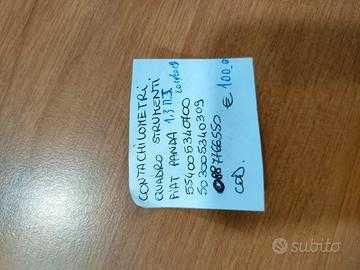 CONTACHILOMETRI
QUADRO STRUMENTI
FIAT PANDA 1.3 MJ
2011/2019
554005340400
503005340309
0887766550
COD.
€ 100.00
subito